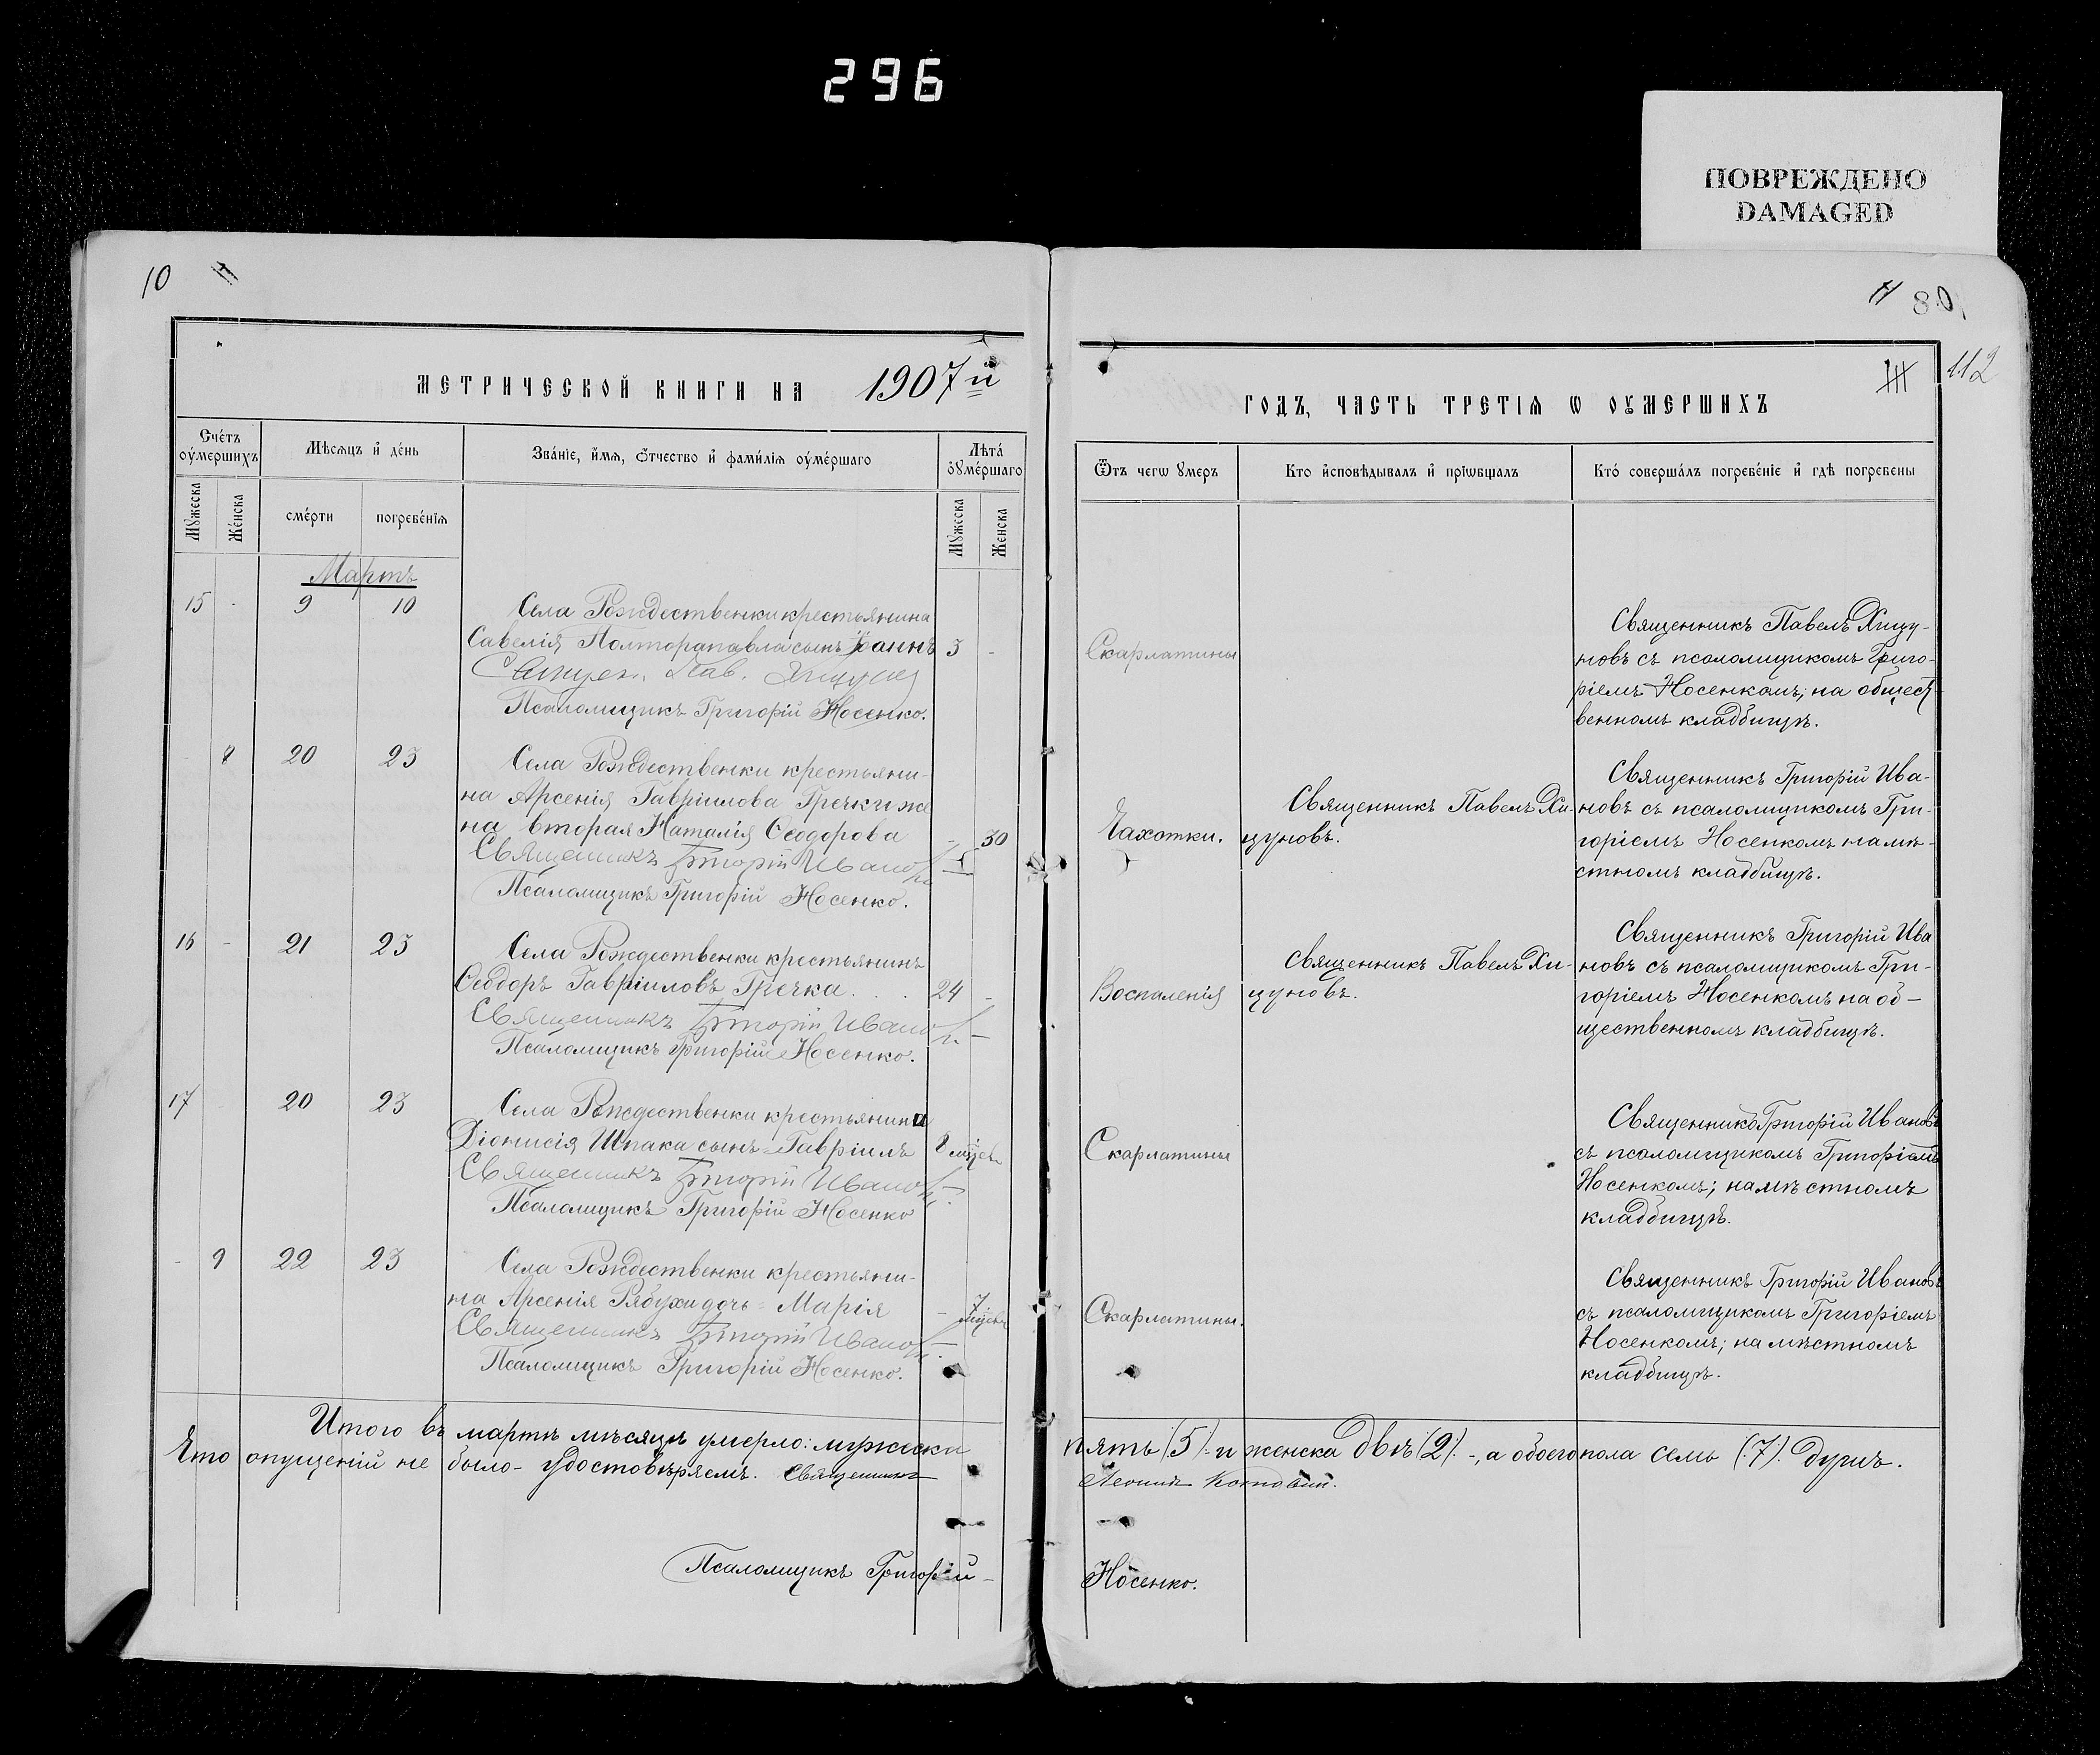 296
ПОВРЕЖДЕНО
DAMAGED
10
80
112
МЕТРИЧЕСКОЙ КНИГИ НА 1907й
ГОДЪ, ЧАСТЬ ТРЕТІѦ Ѡ ОУМЕРШИХЪ
Сче́тъ оу́мершихъ
Мѣсѧцъ и҆ де́нь
Зва́нїе, и҆́мѧ, ѻ҆́тчество и҆ фами́лїѧ оу҆ме́ршаго
Лѣта́ оу҆ме́ршаго
Ѿтъ чегѡ оумеръ
Кто и҆сповѣдывалъ и҆ прїѡбщалъ
Кто́ соверша́лъ погребе́нїе и҆ гдѣ погребены
Мꙋжеска
Же́нска
сме́рти
погребе́нїѧ
Мꙋжеска
Женска
Мартъ
15 - 9 10
Села Рождественки крестьянина
Савелія Полторапавла сынъ Іоаннъ 3 -
Священ. Пав. Хицунов
Псаломщикъ Григорій Носенко.
Скарлатины
Священникъ Павелъ Хицу-
новъ съ псаломщикомъ Григо-
ріемъ Носенкомъ; на общест
венномъ кладбищѣ.
- 8 20 23
Села Рождественки крестьяни-
на Арсенія Гавріилова Гречки же
на вторая Наталія Ѳеодорова - 30
Священникъ Григорій Ивановъ
Псаломщикъ Григорій Носенко.
Чахотки.
Священникъ Павелъ Хи-
цуновъ.
Священникъ Григорій Ива-
новъ съ псаломщикомъ Гри-
горіемъ Носенкомъ на мѣ-
стномъ кладбищѣ.
16 - 21 23
Села Рождественки крестьянинъ
Ѳеодоръ Гавріиловъ Гречка . . . 24 -
Священникъ Григорій Ивановъ
Псаломщикъ Григорій Носенко.
Воспаленія
Священникъ Павелъ Хи-
цуновъ.
Священникъ Григорій Ива
новъ съ псаломщикомъ Гри-
горіемъ Носенкомъ на об-
щественномъ кладбищѣ.
17 20 23
Села Рождественки крестьянина
Діонисія Шпака сынъ Гавріилъ 8 мѣсц
Священникъ Григорій Ивановъ
Псаломщикъ Григорій Носенко
Скарлатины
Священникъ Григорій Ивановъ
съ псаломщикомъ Григоріемъ
Носенкомъ; на мѣстномъ
кладбищѣ.
- 9 22 23
Села Рождественки крестьяни-
на Арсенія Рябухи дочь Марія - 7 мѣсц
Священникъ Григорій Ивановъ
Псаломщикъ Григорій Носенко.
Скарлатины.
Священникъ Григорій Ивановъ
съ псаломщикомъ Григоріемъ
Носенкомъ; на мѣстномъ
кладбищѣ.
Итого въ мартѣ мѣсяцѣ умерло: мужеска пять (5) и женска двѣ (2) -, а обоего пола семь (7) душъ.
Что опущеній не было - удостовѣряемъ. Священникъ
Псаломщикъ Григорій - Носенко.